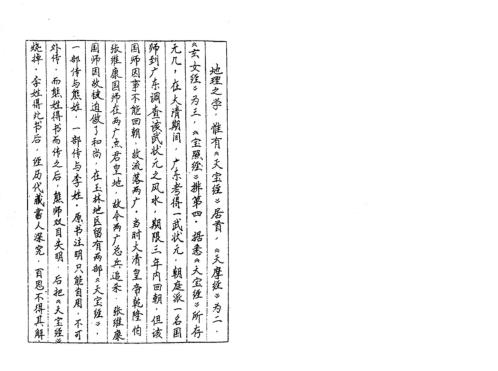 地理之学，惟有《天宝经》居首，《天摩经》为二．
《玄女经》为三，《宝照经》排第四．据悉《天宝经》所存
无几，在大清期间，广东考得一武状元，朝庭派一名国
师到广东调查该武状元之风水，期限三年内回朝，但该
国师因事不能回朝，故流落两广．当时大清皇帝乾隆怕
张维康国师在两广点君皇地，故令两广总兵追杀．张维康
国师因故被迫做了和尚，在玉林地区留有两部《天宝经》．
一部传与熊姓．一部传与李姓．原书注明只能自用．不可
外传．而熊姓得书而传之后，熊师双目失明．后把《天宝经》
烧掉．李姓得此书后，经历代藏书人深究，百思不得其解